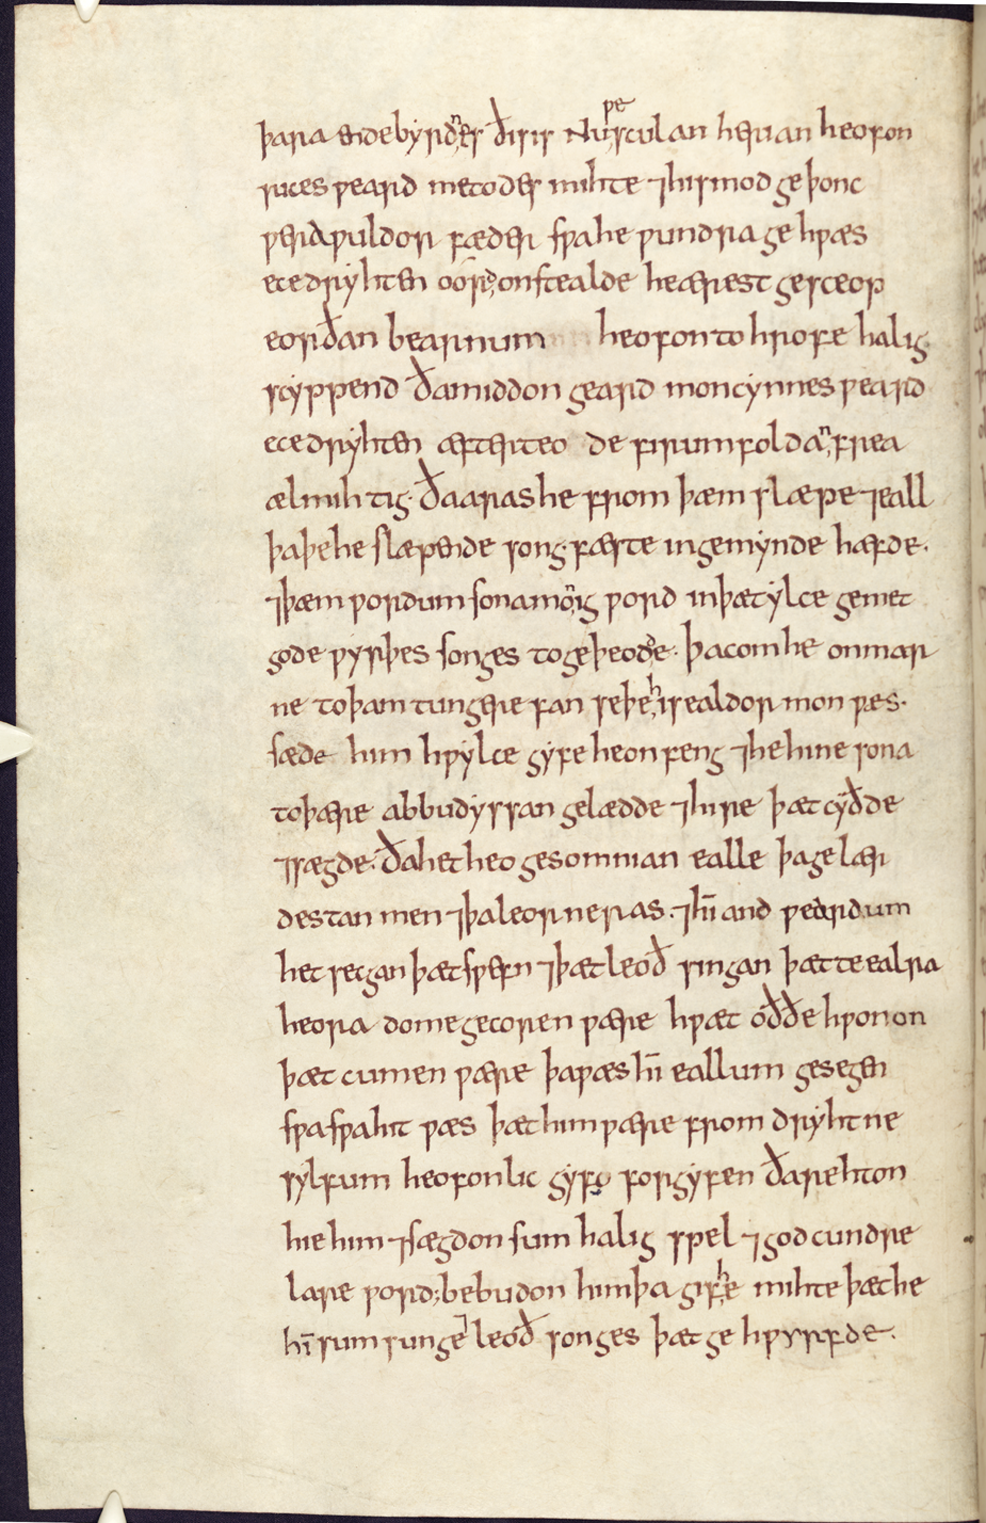 þara endebyrdnes ðis is Nu we sculan herian heofon
rices weard metodes mihte ⁊his modgeþonc
wera wuldor fæder swahe wundra gehwæs
ecedryhten oórd onstealde heærest gesceop
eorðan bearnum heofontohrofe halig
scyppend ðamiddongeard moncynnes weard
ecedryhten æfterteo de firum foldan, frea
ælmihtig. ðaarashe from þæm slæpe ⁊eall
þaþehe slæpende song. fæste ingemynde hæfde.
⁊þæm wordum sonamonig word inþætylce gemet
gode wyrþes songes togeþeodde. þacomhe onmar
ne toþam tungere fan seþe his ealdormon wes.
sæde him hwylce gyfe heonfeng ⁊hehine sona
toþære abbudyssan gelædde ⁊hire þæt cyðde
⁊sægde. ðahetheo gesomnian ealle þagelær
destan men ⁊þaleorneras. ⁊hī andweardum
het secgan þætswefn ⁊þætleoð singan þætteealra
heora domegecoren wære hwæt oððe hwonon
þæt cumen wære þawæshī eallum gesegen
swaswahit wæs þæthimwære from dryhtne
sylfum heofonlic gyfo forgyfen ðarehton
hiehim ⁊sægdon sum halig spel ⁊godcundre
lare word; bebudon himþa gif he mihte þæthe
hī sumsunge ⁊ leoð songes þætge hwyrfde.